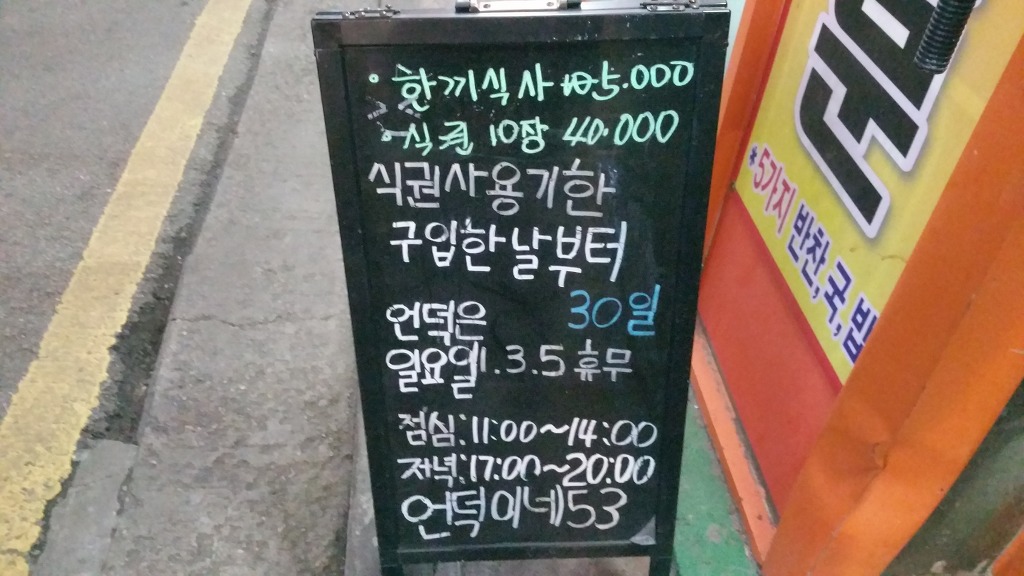 · 한끼식사 5.000
· 식권 10장 40.000
식권사용기한
구입한날부터
30일
언덕은
일요일1.3.5 휴무
점심:11:00~14:00
저녁:17:00~20:00
언덕이네53
*5가지 반찬,국,밥